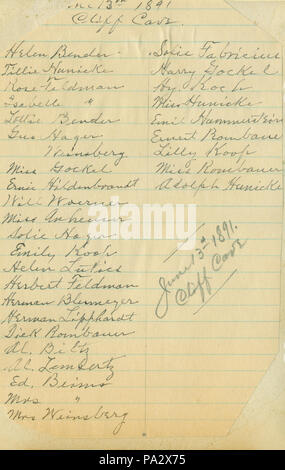 June 13th 1891
Cliff Cave.
Helen Bender
Tillie Hunicke
Rose Feldman
Isabelle "
Lottie Bender
Gus Hager
Weinsberg
Miss Gockel
Ernie Hildenbrandt
Will Woerner
Miss
Solie Hager
Emily Koop
Helen
Herbert Feldman
Herman Blumeyer
Herman Lipphardt
Dick Rombauer
Al. Biltz
Al.
Ed. Beims
Mrs "
Mrs Weinsberg
Solie Fabricius
Harry Gockel
Hy. Koch
Miss Hunicke
Emil Hammerstein
Ernest Rombauer
Lilly Koop
Miss Rombauer
Adolph Hunicke
June 13th 1891.
Cliff Cave
alamy
Image ID: PA2X75
www.alamy.com